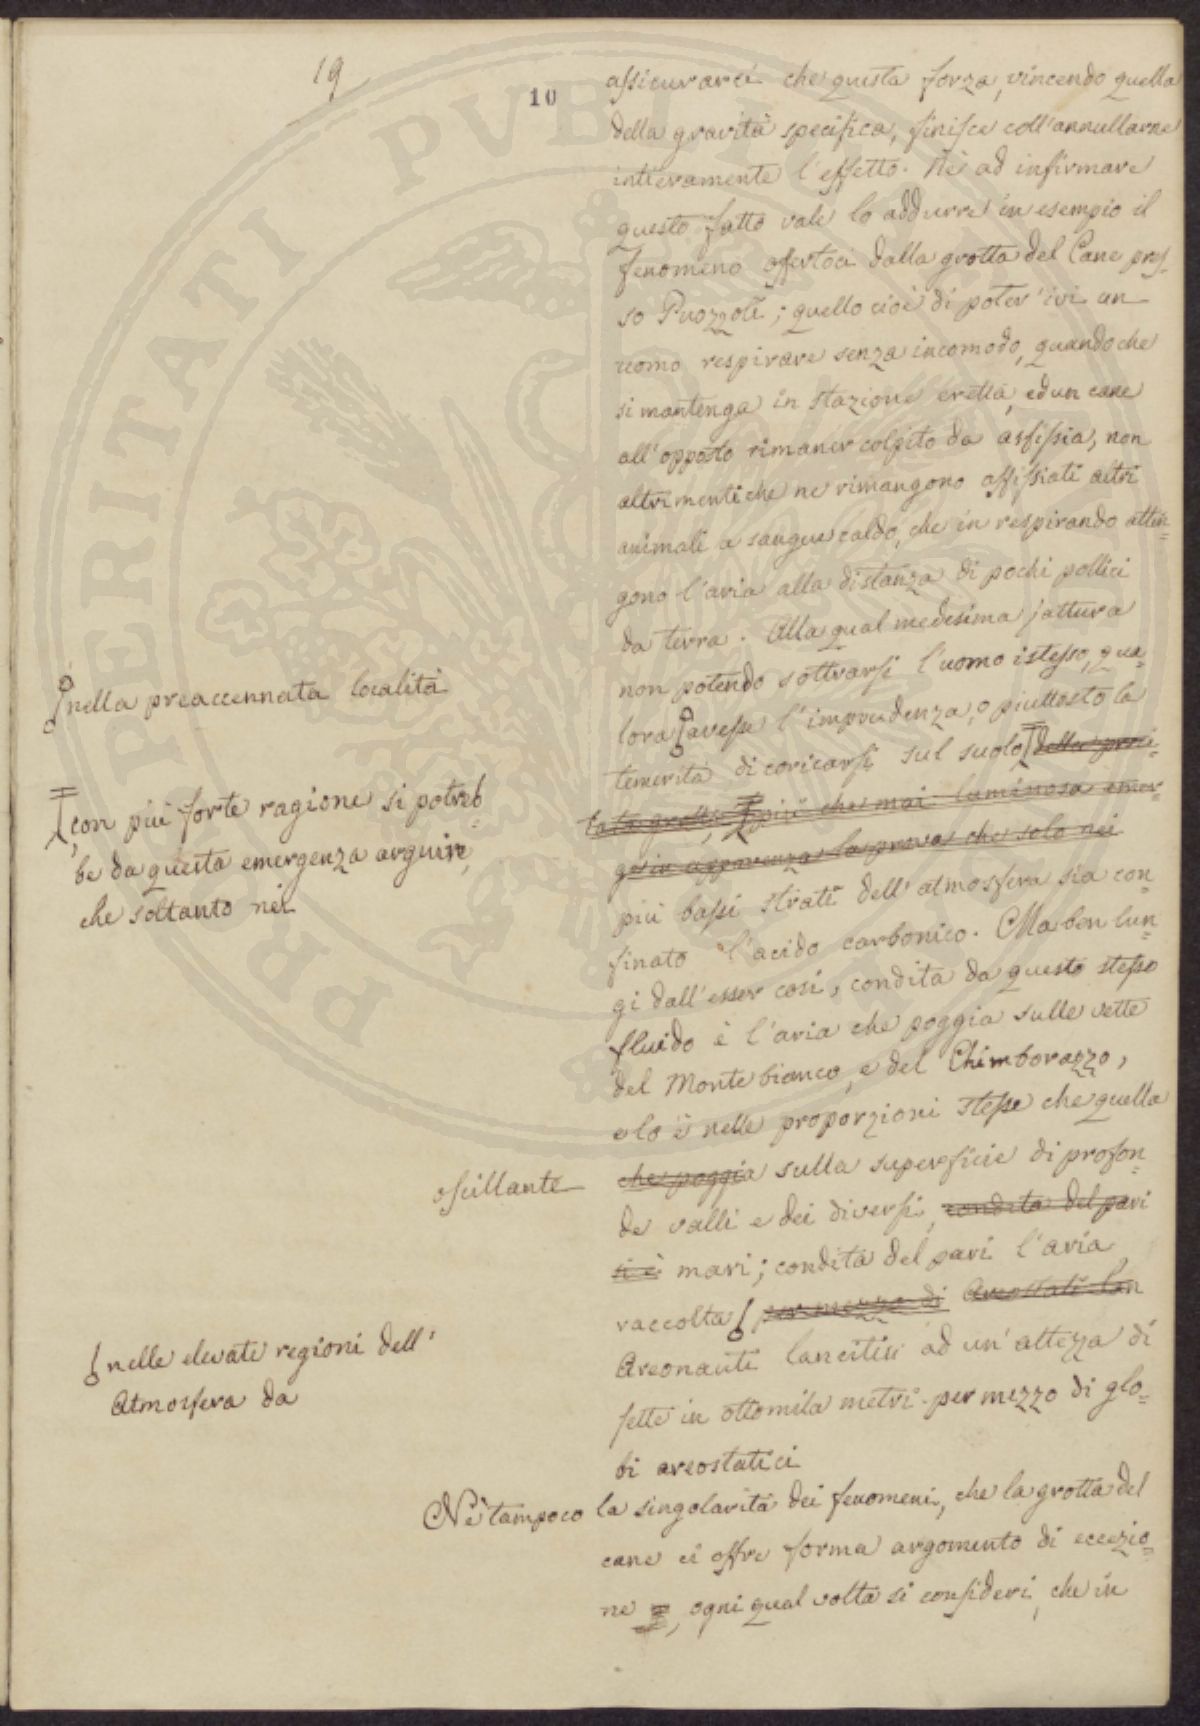 19
10
assicurarci che questa forza, vincendo quella
della gravità specifica, finisce coll'annullarne
intieramente l'effetto. Nè ad infirmare
questo fatto vale lo addurre in esempio il
fenomeno offertoci dalla grotta del Cane pres-
so Puozzoli; quello cioè di poter'ivi un
uomo respirare senza incomodo, quandoche
si mantenga in stazione eretta, ed un cane
all'opposto rimaner colpito da asfissia, non
altrimenti che ne rimangono asfissiati altri
animali a sangue caldo, che in respirando attin=
gono l'aria alla distanza di pochi pollici
da terra. Alla qual medesima jattura
non potendo sottrarsi l'uomo istesso, qua=
lora avesse l'imprudenza, o piuttosto la
temerità di coricarsi sul suolo della preci-
tata grotta, più che mai luminosa emer-
ge in apparenza la prova che solo nei
più bassi strati dell'atmosfera sia con=
finato l'acido carbonico. Ma ben lun=
gi dall'esser così, condita da questo stesso
fluido è l'aria che poggia sulle vette
del Monte bianco, e del Chimborazzo,
e lo è nelle proporzioni stesse che quella
che poggia sulla superficie di profon=
de valli e dei diversi, condita del pari
si è mari; condita del pari l'aria
raccolta per mezzo di Areostati lan
Areonauti lancitisi ad un'altezza di
sette in ottomila metri per mezzo di glo=
bi areostatici
Nè tampoco la singolarità dei fenomeni, che la grotta del
cane ci offre forma argomento di eccezio=
ne, ogni qual volta si consideri, che in
nella preaccennata località
con più forte ragione si potreb=
be da questa emergenza arguire,
che soltanto nei
oscillante
nelle elevate regioni dell'
Atmosfera da